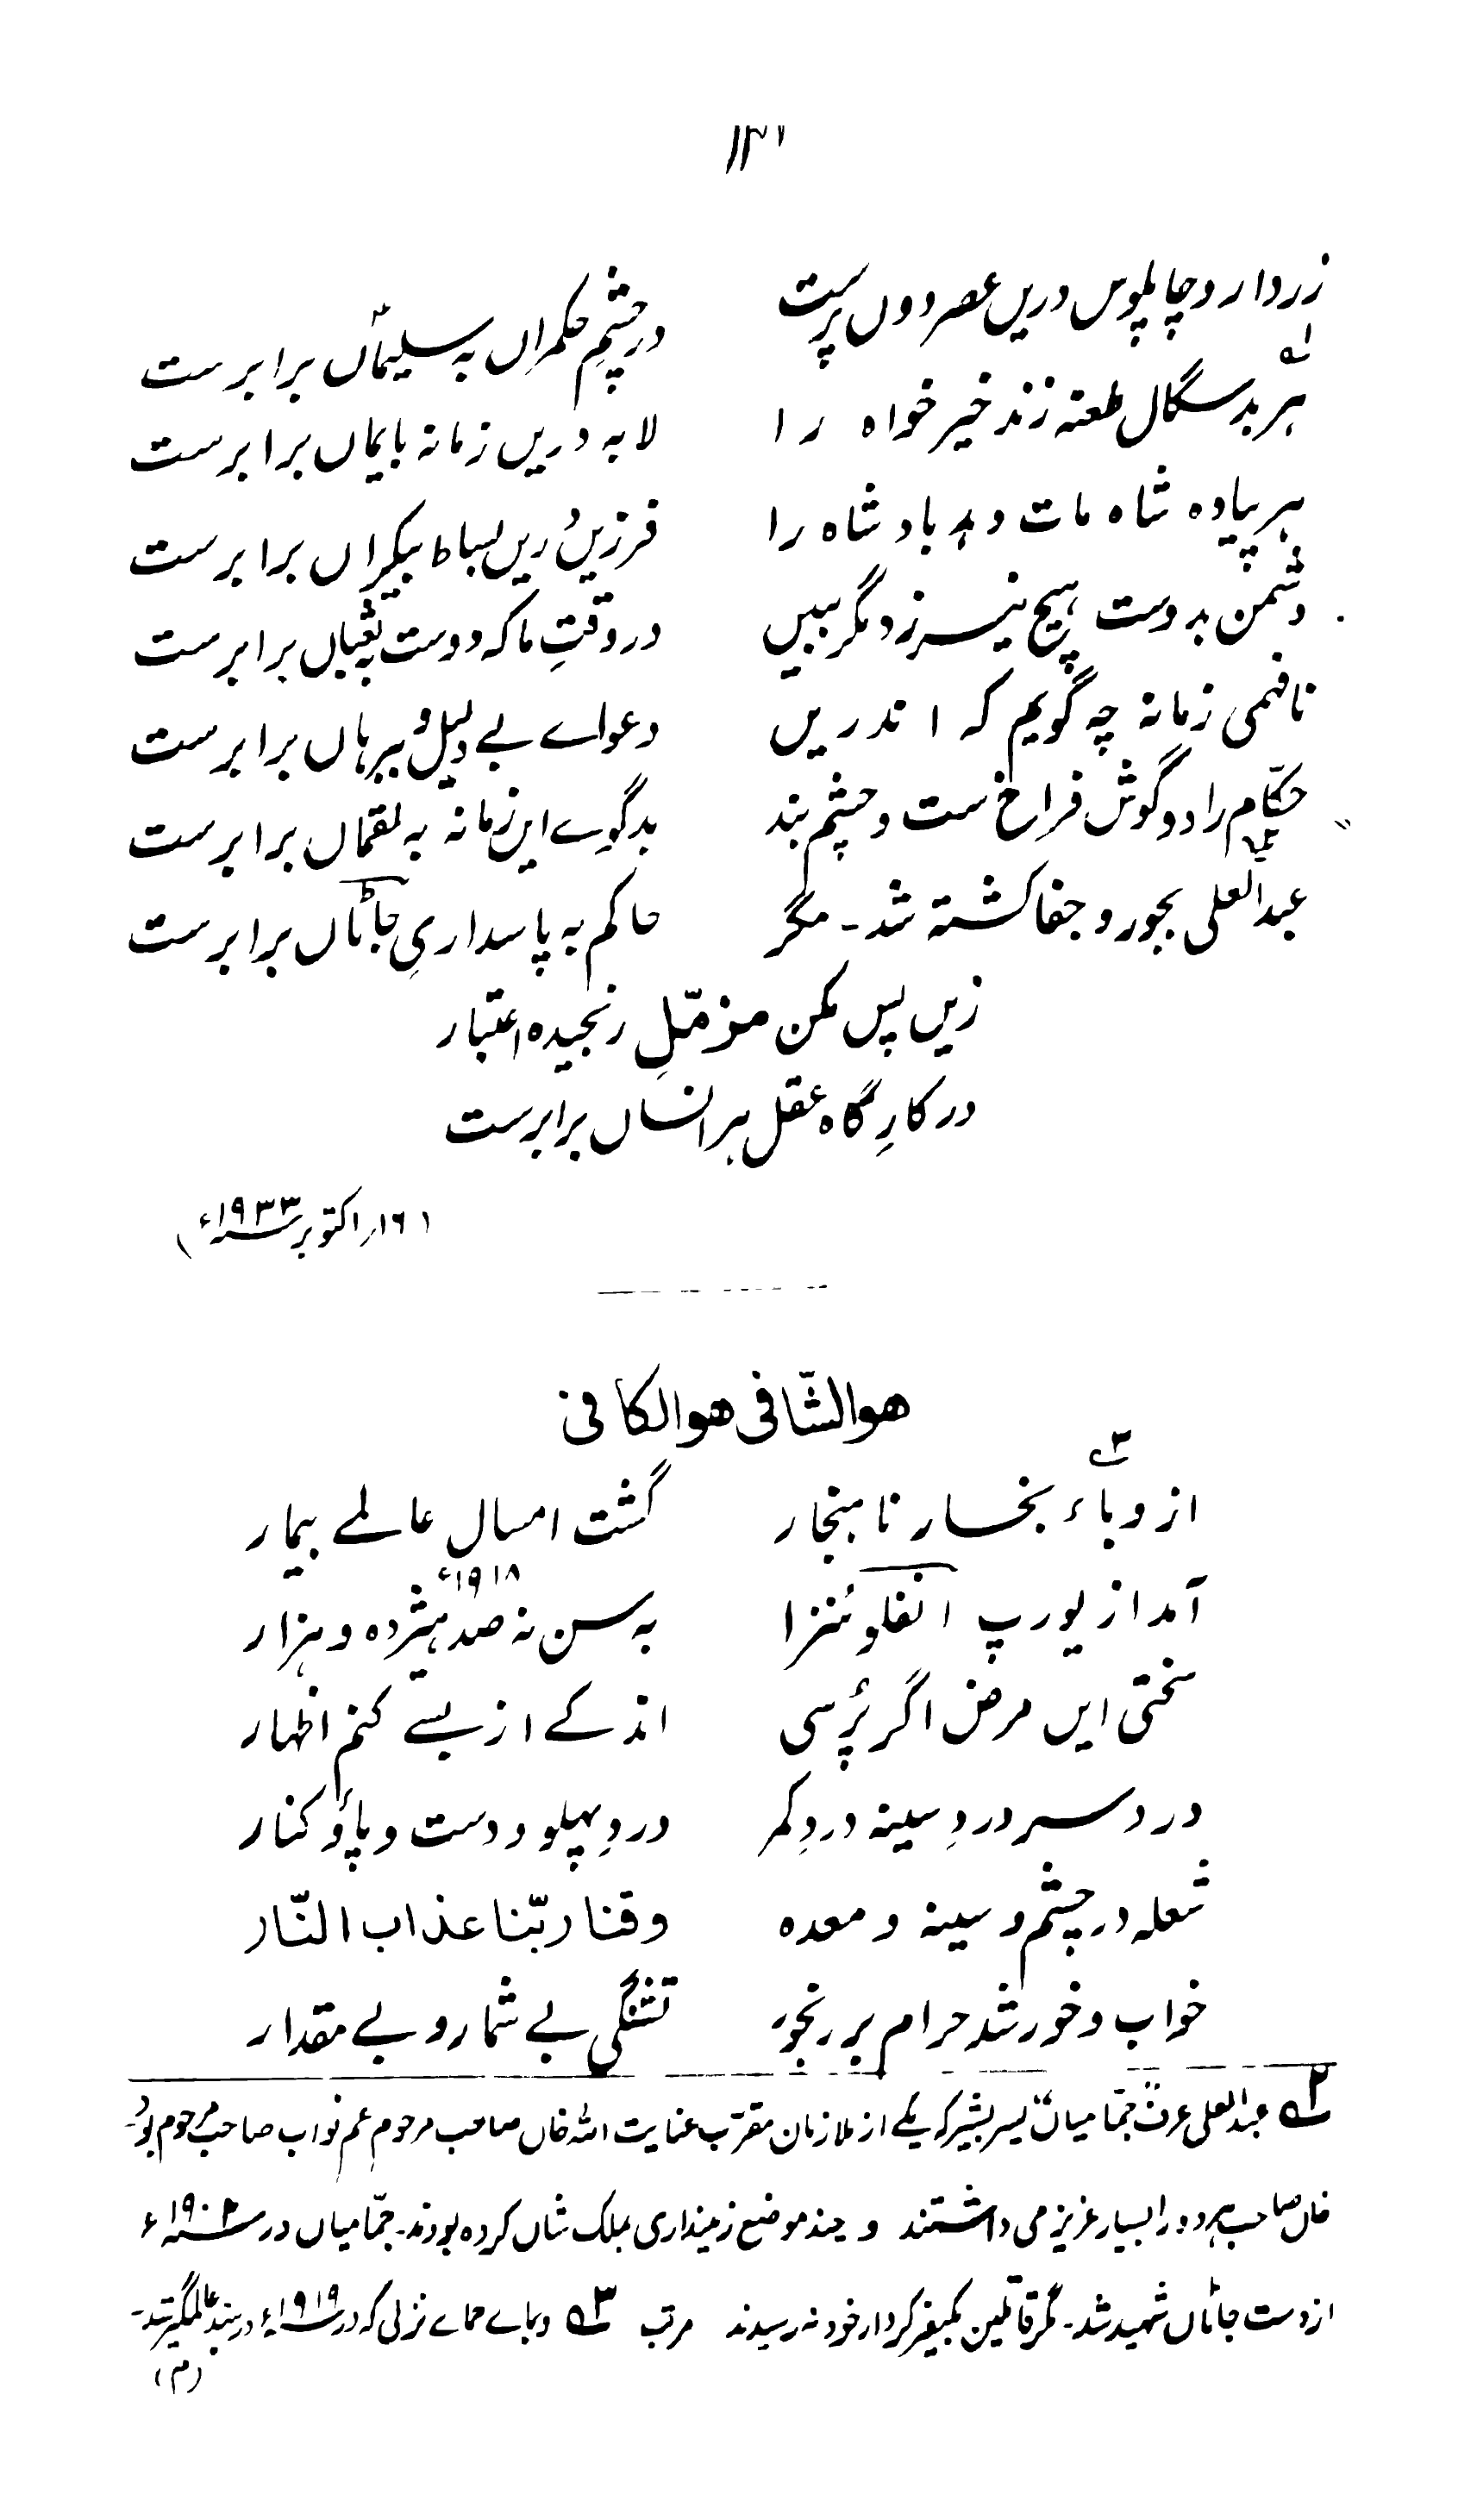 زردار و چاپلوس دریں عصر دوں پرست در چشمِ حکمراں بہ سلیماں برابرست
ہر بد سگال طعنہ زند خیر خواہ را لابہ دریں زمانہ بایماں برابرست
ہر پیادہ شاہ مات دہد بادشاہ را فرزیں دریں بساط بیکراں برابرست
دشمن بدوست ہیچ نیرزد مگر ببیں در وقتِ ما کہ دوست برابرست
نافہمی زمانہ چہ گویم کہ اندریں دعواے بے دلیل ببرہاں برابرست
حکّام را دو گوش فراخ ست و چشم بند بدگوے ایں زمانہ بہ لقماں برابرست
عبدالعلی بجور و جفا کشتہ شد۔ مگر حاکم بہ پاسداریِ جاٹاں برابرست
زیں پس مکن مزمّلِ رنجیدہ اعتبار
در کارِگاہ عقل ہر انساں برابرست
(۱۶؍ اکتوبر ۱۹۳۳ء)
ھوالشّافی ھوالکافی
از وباء بخار ناہنجار گشت امسال عالمے بیمار
آمد از یورپ انفلوئنزا بہ سن نہ صد ہشژدہ و ہزار ۱۹۱۸ء
سختی ایں مرض اگر پُرسی اندکے از بسے کنم اظہار
درد سر دردِ سینہ دردِ کمر دردِ پہلو و دست و پاؤ کنار
شعلہ در چشم و سینہ و معدہ وقنا ربّنا عذاب النّار
خواب و خور شد حرام بر رنجور تشنگی بے شمار و بے مقدار
لہ عبدالعلی عرف جمّا میاں پسر بشیر کہ یکے از ملازمان مقرّب عنایت اللہ خاں صاحب مرحوم عم نواب صاحب مرحوم بود۔
خاں صاحب را بسیار عزیز می داشتند و چند موضع زمینداری بملک شاں کردہ بودند۔ جمّا میاں در ۱۹۰۲ء
از دست جاٹاں شہید شد۔ مگر قاتلین بکیفر کردار خود نہ رسیدند مرتب ۲ہ وباے حماے نزلی کہ در ۱۹۱۹ء در ہند عالمگیر شد۔
(م)